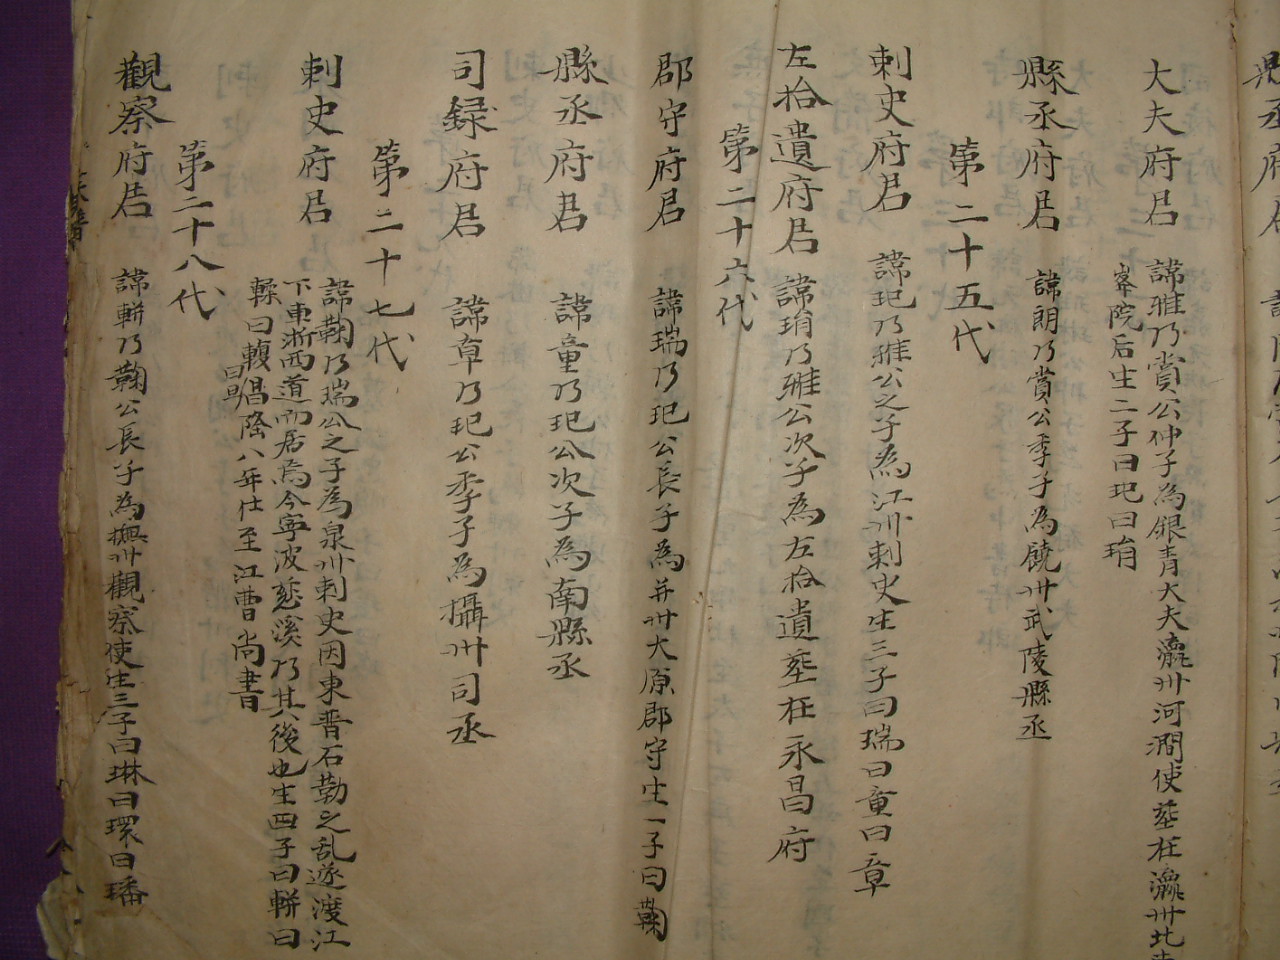 縣丞府君
大夫府君 諱雅乃賞公仲子為銀青大夫瀛州河澗使塟在瀛州北
峯院后生二子曰玘曰琄
縣丞府君 諱朗乃賞公季子為饒州武陵縣丞
第二十五代
刺史府君 諱玘乃雅公之子為江州刺史生三子曰瑞曰童曰章
左拾遺府君 諱琄乃雅公次子為左拾遺塟在永昌府
第二十六代
郡守府君 諱瑞乃玘公長子為并州大原郡守生一子曰鞠
縣丞府君 諱童乃玘公次子為南縣丞
司録府君 諱章乃玘公季子為攝州司丞
第二十七代
刺史府君 諱鞠乃瑞公之子為泉州刺史因東晋石勒之乱遂渡江
下東浙西道而居焉今寧波慈溪乃其後也生四子曰軿曰
輮曰轅曰昌隆八年仕至江曹尚書
第二十八代
觀察府君 諱軿乃鞠公長子為撫州觀察使生三子曰琳曰環曰璠